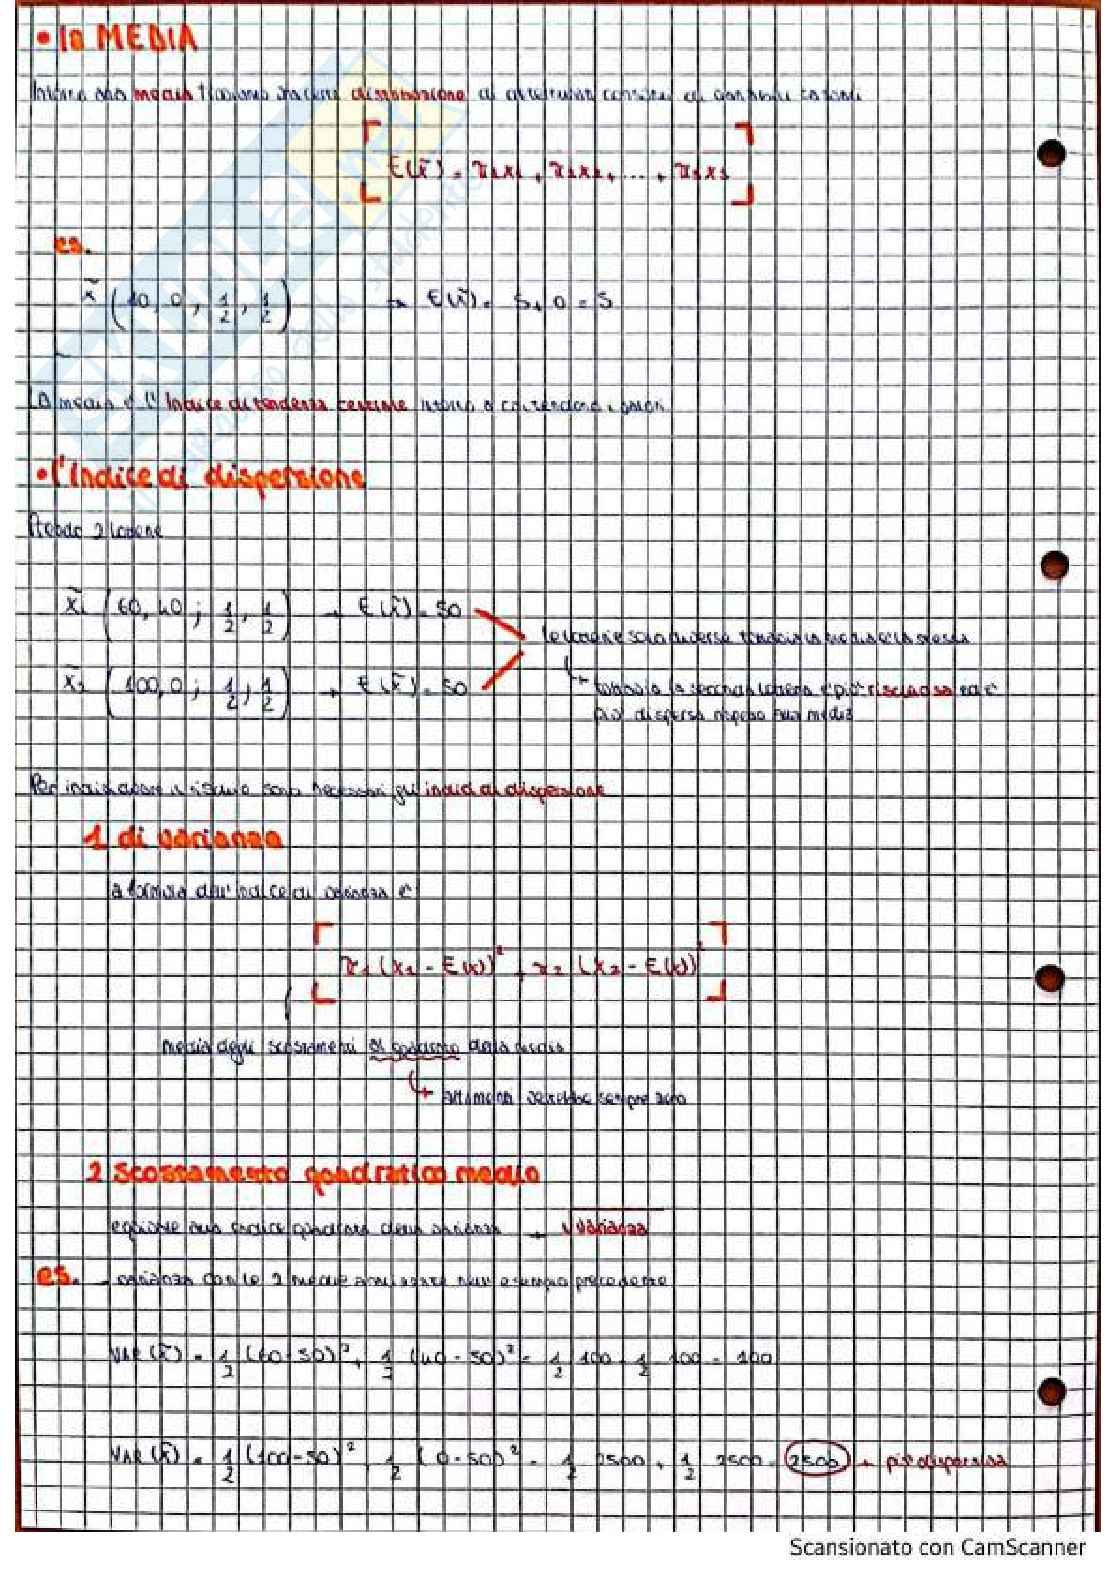 • la MEDIA
Intorno alla media troviamo una certa distribuzione di
E(x̃) = π₁x₁ + π₂x₂ + ... + πₛxₛ
es.
x̃ (10, 0 ; 1/2, 1/2) → E(x̃) = 5 + 0 = 5
La media è l'indice di tendenza centrale intorno a cui tendono i valori
• l'indice di dispersione
2 lotterie
x̃₁ (60, 40 ; 1/2, 1/2) → E(x̃) = 50
le lotterie sono diverse tuttavia la media è la stessa
x̃₂ (100, 0 ; 1/2, 1/2) → E(x̃) = 50
↳ tuttavia la seconda lotteria è più rischiosa ed è
più dispersa rispetto alla media
Per individuare il rischio sono necessari gli indici di dispersione
1 di varianza
la formula dell'indice di varianza è
π₁ (x₁ - E(x))² + π₂ (x₂ - E(x))²
media degli scostamenti al quadrato dalla media
↳ altrimenti sarebbe sempre zero
2 Scostamento quadratico medio
equivale alla radice quadrata della varianza → √varianza
es. - varianza con le 2 medie nell'esempio precedente
VAR (x̃) = 1/2 (60-50)² + 1/2 (40-50)² = 1/2 100 + 1/2 100 = 100
VAR (x̃) = 1/2 (100-50)² + 1/2 (0-50)² = 1/2 2500 + 1/2 2500 = 2500 → più dispersa
Scansionato con CamScanner